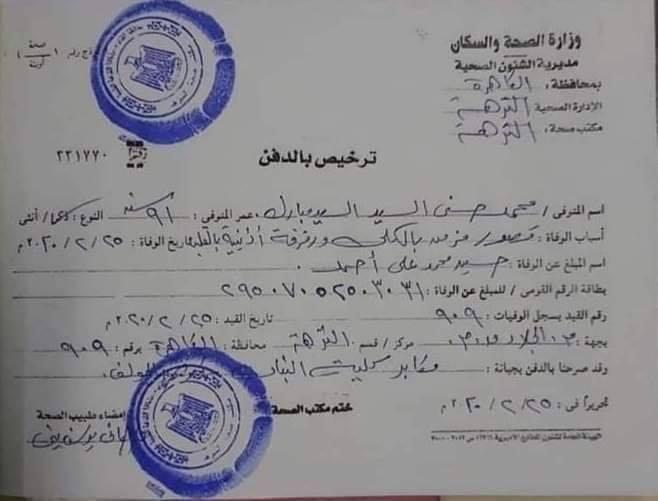 وزارة الصحة والسكان
مديرية الشئون الصحية
بمحافظة: القاهرة
الإدارة الصحية النزهة
مكتب صحة: النزهة
ترخيص بالدفن
رقم ٢٢١٧٧٠
اسم المتوفى / محمد حسنى السيد السيد مبارك عمر المتوفى: ٩١ سنة النوع: ذكر / أنثى
أسباب الوفاة: قصور مزمن بالكلى ورفرفة أذنية بالقلب بتاريخ الوفاة: ٢٥ / ٢ / ٢٠٢٠م
اسم المبلغ عن الوفاة: سيد محمد على أحمد
بطاقة الرقم القومى / للمبلغ عن الوفاة: ٢٩٥٠٧٠٥٢٥٠٣٠٣١
رقم القيد بسجل الوفيات: ٩٠٩ تاريخ القيد ٢٥ / ٢ / ٢٠٢٠م
بجهة: مركز / قسم النزهة محافظة: القاهرة برقم: ٩٠٩
وقد صرحنا بالدفن بجبانة: مقابر
تحريراً فى: ٢٥ / ٢ / ٢٠٢٠م
ختم مكتب الصحة
إمضاء طبيب الصحة